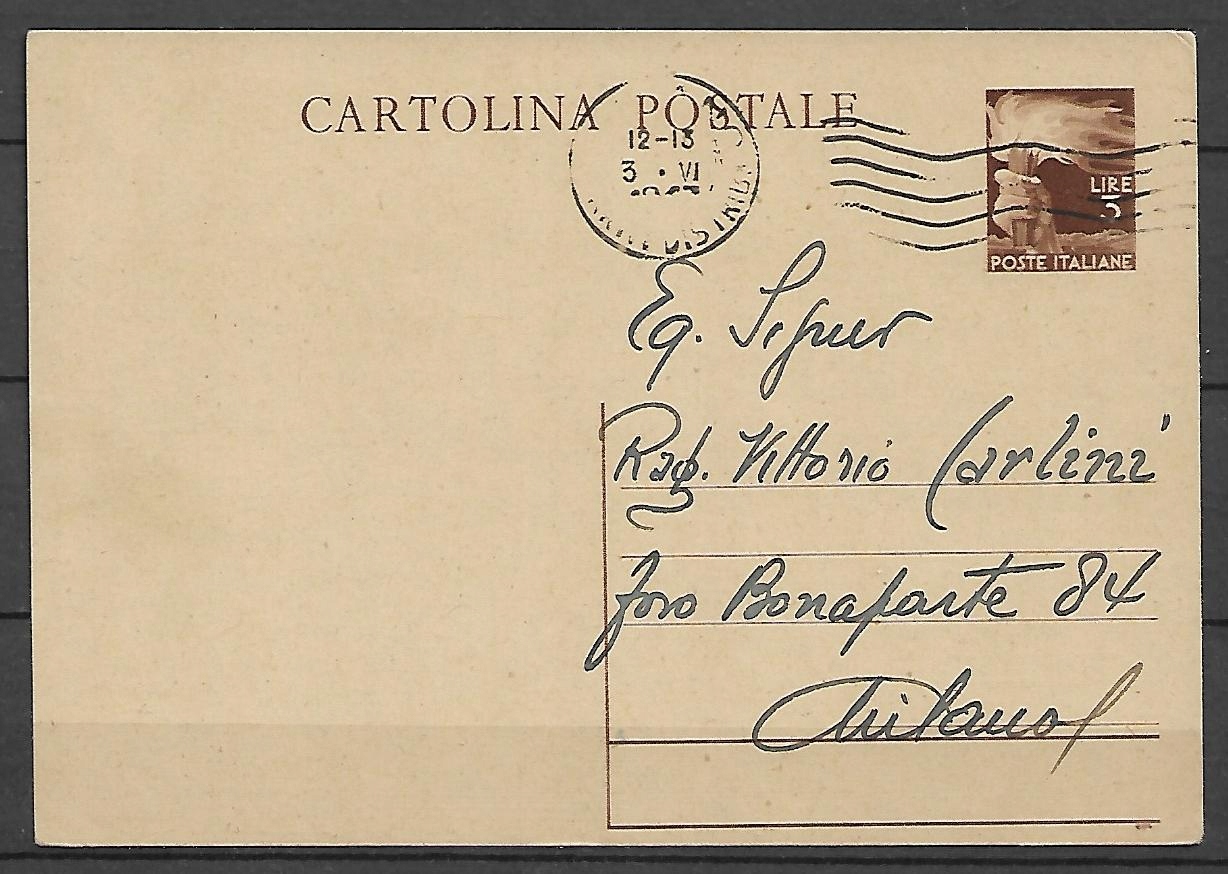 CARTOLINA POSTALE
12-13
3 · VI
DISTRIB
LIRE
3
POSTE ITALIANE
Eg. Signor
Rag. Vittorio Carlini
Foro Bonaparte 84
Milano